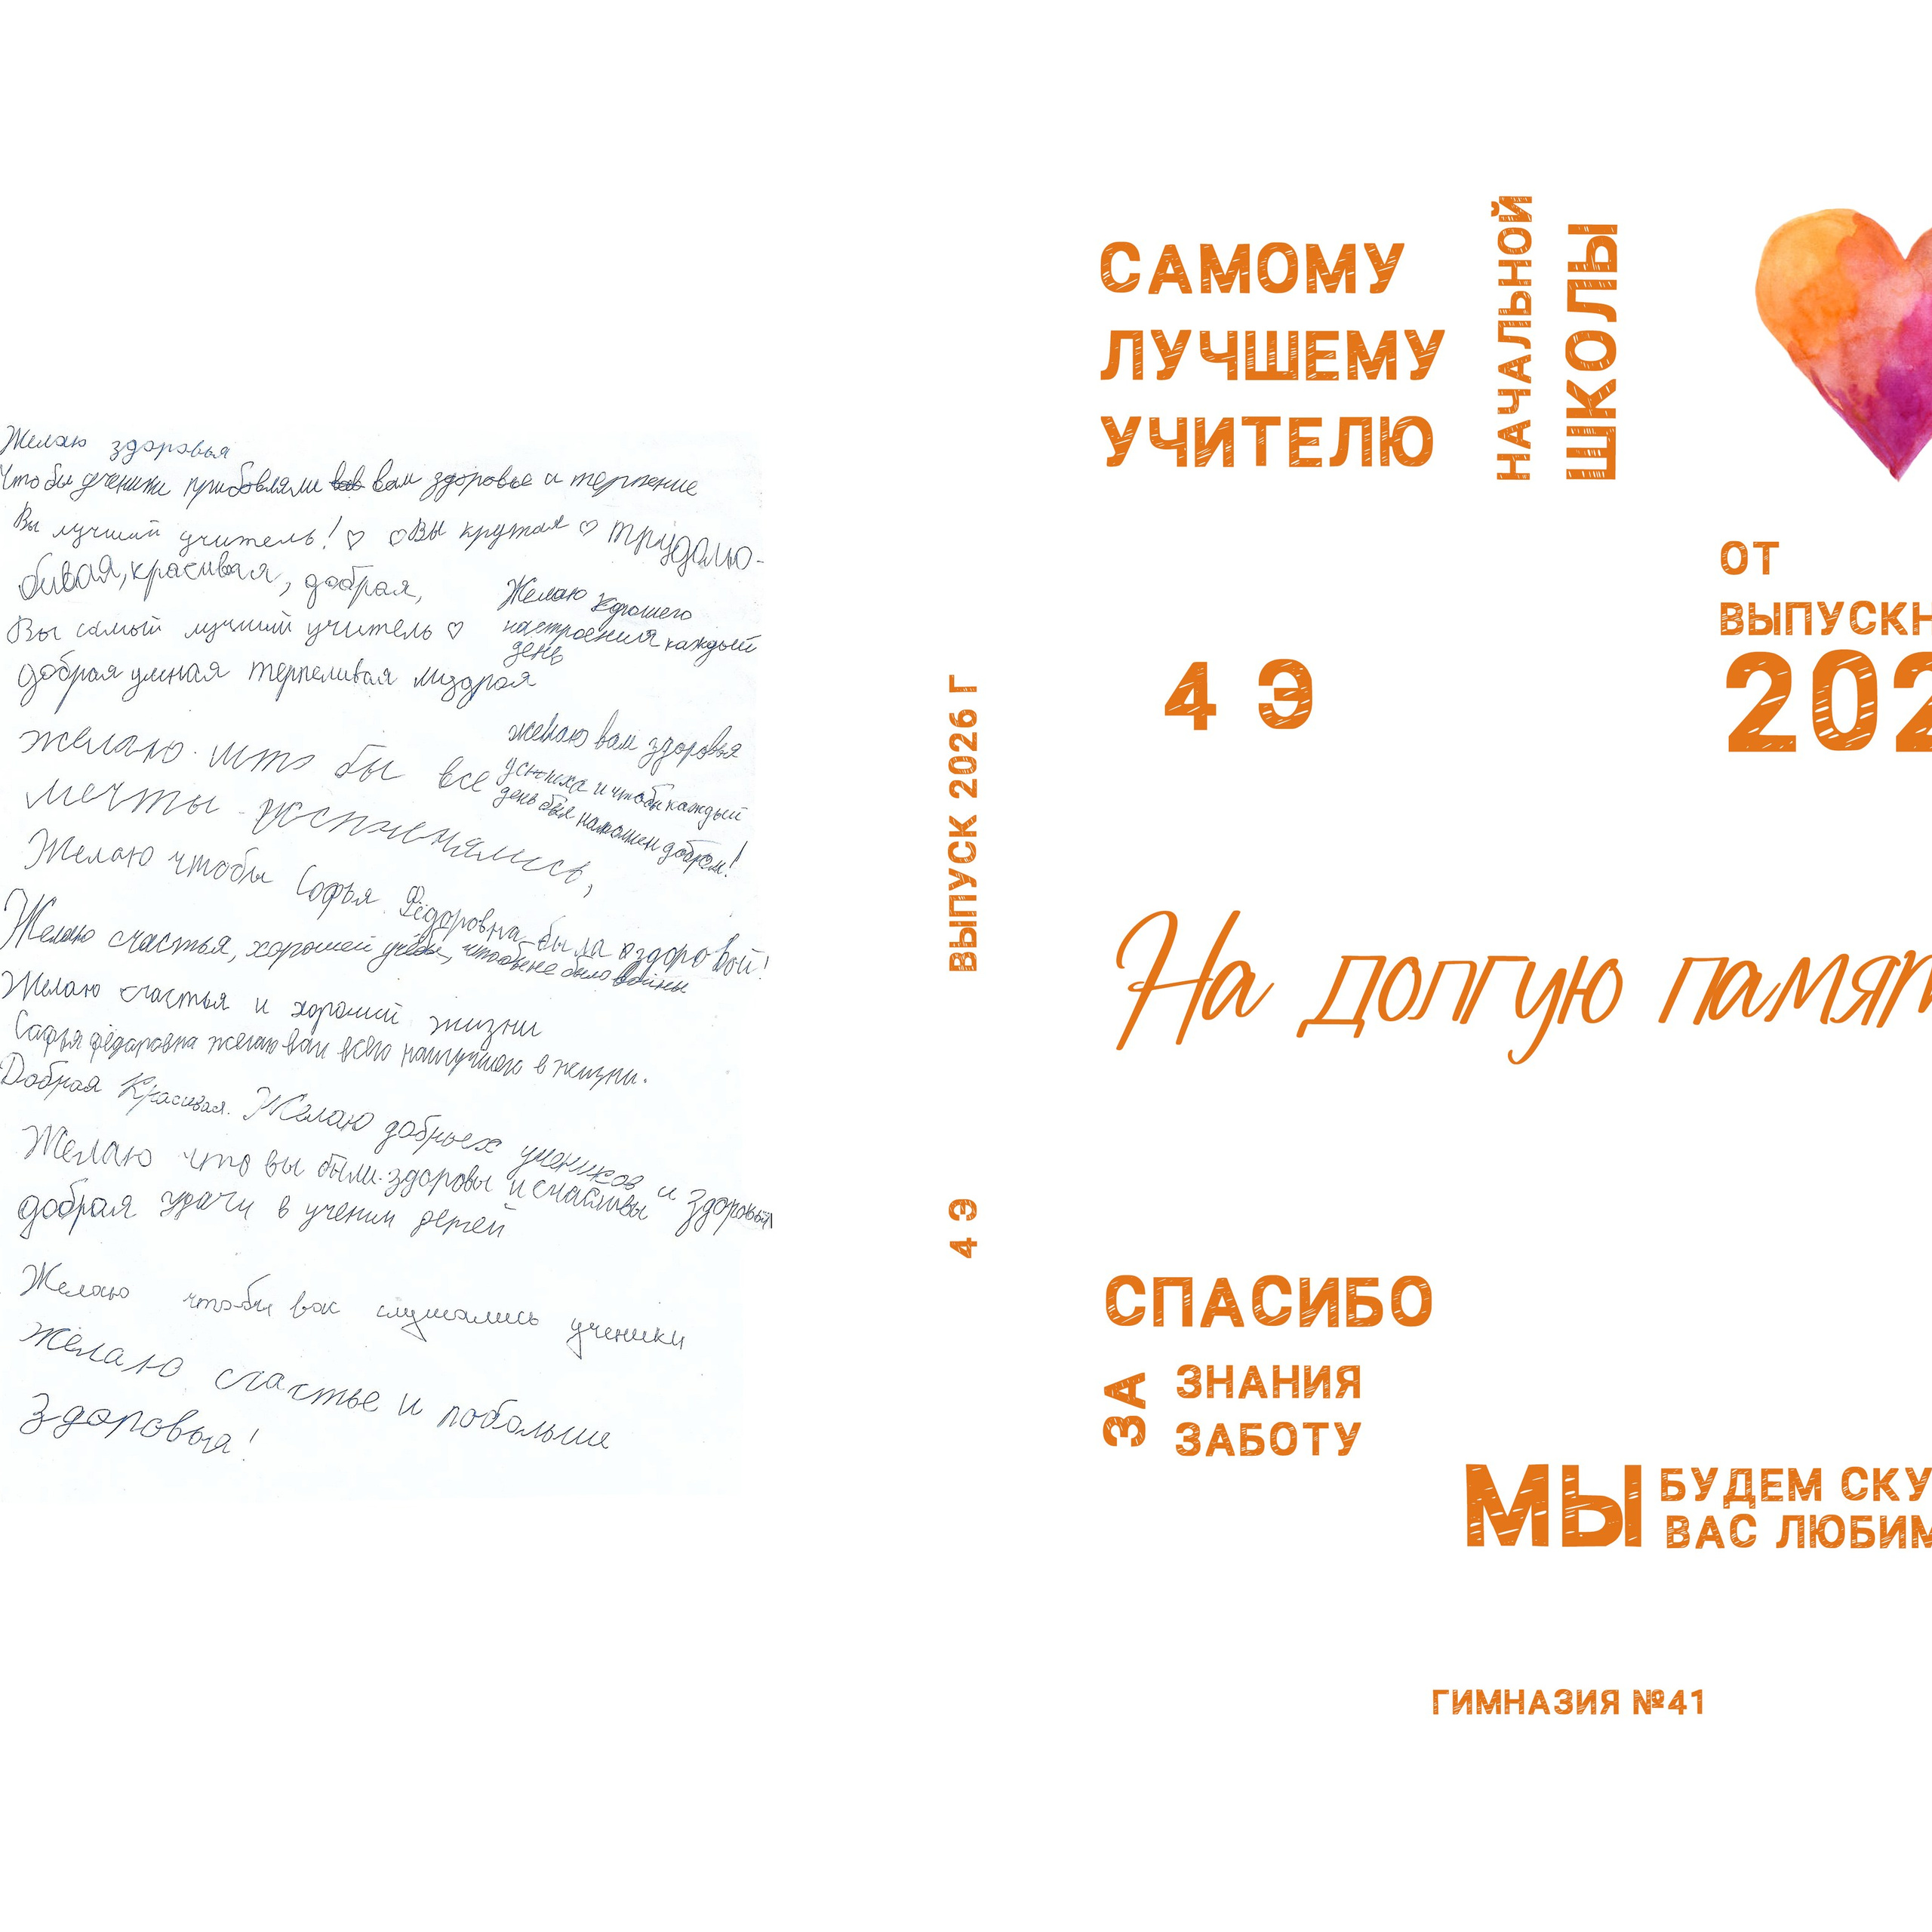 Желаю здоровья
Чтобы ученики прибовляли вам здоровье и терпение
Вы лучший учитель! ♡ ♡ Вы крутая ♡ трудолю-
бивая, красивая, добрая,
Желаю хорошего
настроения каждый
день
Вы самый лучший учитель ♡
добрая умная терпеливая мудрая
желаю што бы все
мечты исполнялись,
желаю вам здоровья
успеха и чтобы каждый
день был наполнен добром!
Желаю чтобы Софья Фёдоровна была здоровой!
Желаю счастья, хорошей учёбы, чтобы не было войны
Желаю счастья и хорошей жизни
Софья фёдоровна желаю вам всего наилучшего в жизни.
Добрая Красивая. Желаю добрых учеников и здоровья
Желаю что вы были здоровы и счастливы
добрая удачи в учении детей
Желаю чтобы вас слушались ученики
Желаю счастье и побольше
здоровья!
ВЫПУСК 2026 Г
4 Э
САМОМУ
ЛУЧШЕМУ
УЧИТЕЛЮ
НАЧАЛЬНОЙ
ШКОЛЫ
ОТ
ВЫПУСКН
202
4 Э
На долгую памят
СПАСИБО
ЗА
ЗНАНИЯ
ЗАБОТУ
МЫ
БУДЕМ СКУ
ВАС ЛЮБИМ
ГИМНАЗИЯ №41